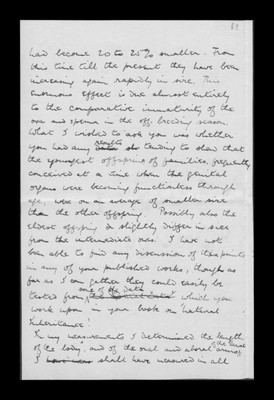 had become 20 to 25% smaller. From
this time till the present they have been
increasing again rapidly in size. This
enormous effect is due almost entirely
to the comparative immaturity of the
ova and sperm in the off breeding season.
What I wished to ask you was whether
you had any results tending to show that
the youngest offspring of families, frequently
conceived at a time when the genital
organs were becoming functionless through
age, were on an average of smaller size
than the other offspring. Possibly also the
eldest offspring do slightly differ in size
from the intermediate ones. I have not
been able to find any discussion of these points
in any of your published works, though as
far as I can gather they could easily be
tested from some of the data which you
work upon in your book on 'Natural
Inheritance'.
In my measurements I determined the length
of the body, and of the oral and aboral arms of the larvae
I shall have measured in all